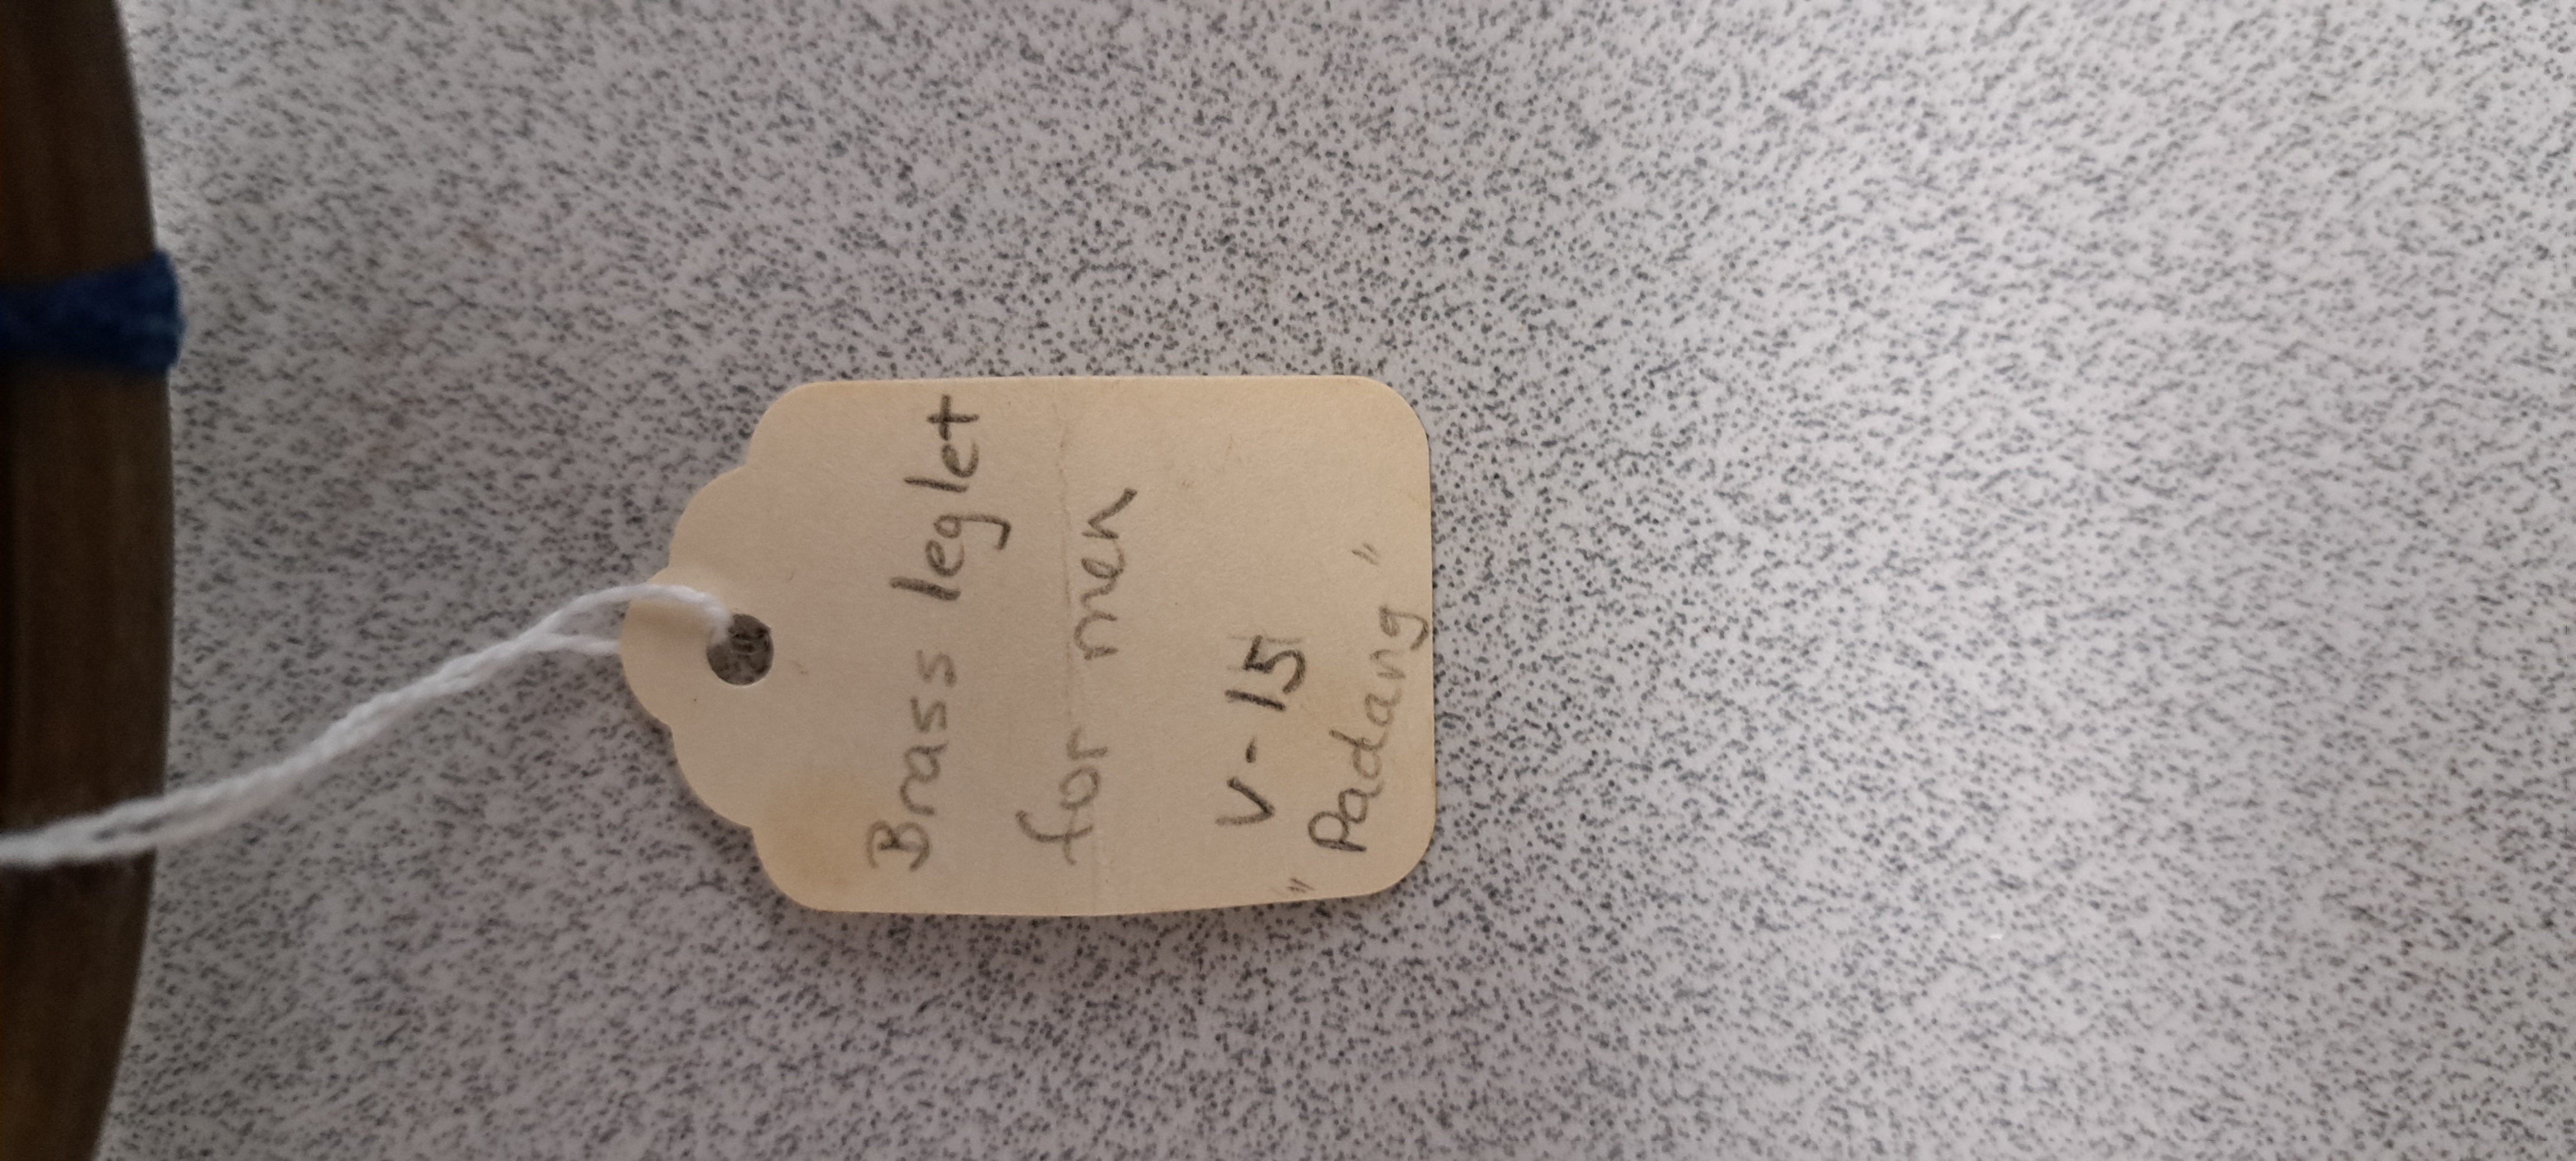 Brass leglet
for men
V-15
"Padang"